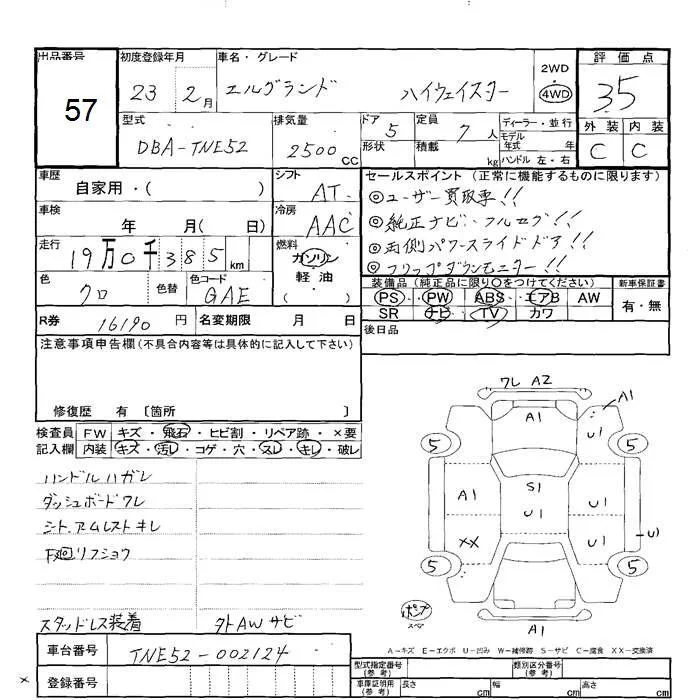 出品番号 初度登録年月 車名・グレード 評価点
57 23 2月 エルグランド ハイウェイスター 2WD 4WD 35
型式 排気量 ドア 定員 ディーラー・並行 外装 内装
DBA-TNE52 2500CC 5 7人 モデル年式 年 C C
形状 積載 kg ハンドル 左・右
車歴 シフト セールスポイント (正常に機能するものに限ります)
自家用・( ) AT ◎ユーザー買取車!!
車検 冷房 ◎純正ナビ・フルセグ!!
年 月( 日) AAC ◎両側パワースライドドア!!
走行 燃料
19万0千385km ガソリン ◎フリップダウンモニター!!
軽油
( )
色 色替 色コード 装備品 (純正品に限り○をつけてください) 新車保証書
クロ GAE PS PW ABS エアB AW 有・無
SR ナビ TV カワ
R券 16190円 名変期限 月 日 後日品
注意事項申告欄(不具合内容等は具体的に記入して下さい)
修復歴 有 [箇所 ]
検査員 FW キズ・飛石・ヒビ割・リペア跡・×要
記入欄 内装 キズ・汚レ・コゲ・穴・スレ・キレ・破レ
ハンドルハガレ
ダッシュボードワレ
シート.アームレストキレ
下廻リフショウ
スタッドレス装着 タトAWサビ
ワレ A2
A1 A1
U1
5 5
S1
A1 U1 U1
XX U1 U1
5 5
ポンプ
スマ
A1
A-キズ E-エクボ U-凹み W-補修跡 S-サビ C-腐食 XX-交換済
車台番号 TNE52-002124
登録番号
型式指定番号(参考) 類別区分番号(参考)
車庫証明用(参考) 長さ cm 幅 cm 高さ cm